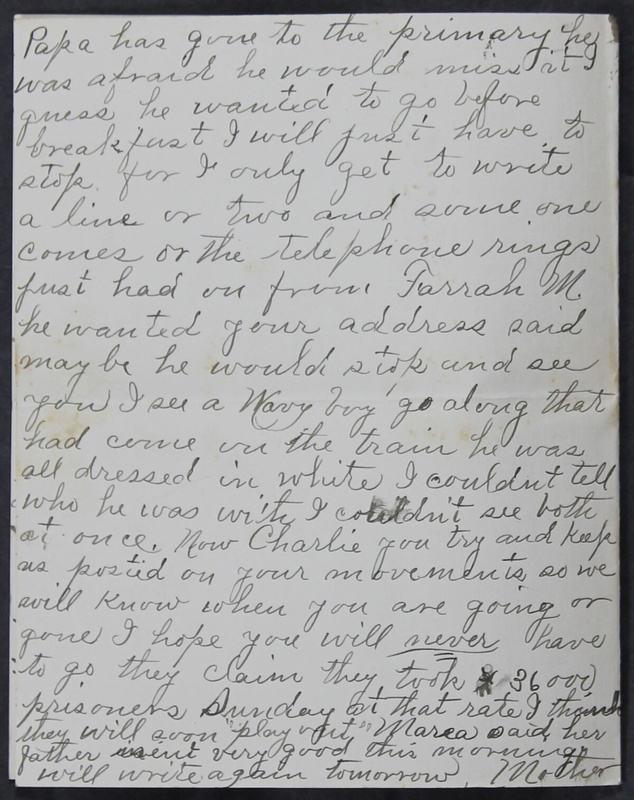 Papa has gone to the primary he
was afraid he would miss it I
guess he wanted to go before
breakfast I will just have to
stop for I only get to write
a line or two and some one
comes or the telephone rings
just had on from Farrah M.
he wanted your address said
maybe he would stop and see
you I see a Navy boy go along that
had come on the train he was
all dressed in white I couldn't tell
who he was with I couldn't see both
at once. Now Charlie you try and keep
us posted on your movements so we
will know when you are going or
gone I hope you will never have
to go they claim they took 36000
prisoners Sunday at that rate I think
they will soon "play out" said her
father went very good this morning
will write again tomorrow. Mother